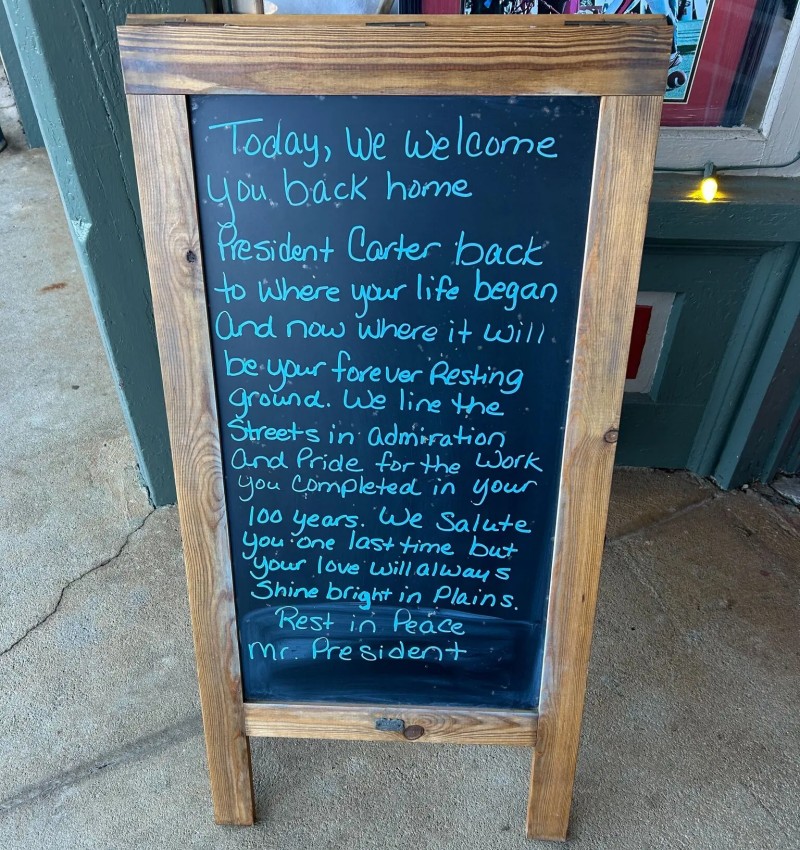 Today, We Welcome
you back home
President Carter back
to where your life began
And now where it will
be your forever Resting
ground. We line the
Streets in admiration
and Pride for the Work
you completed in your
100 years. We Salute
you one last time but
your love will always
Shine bright in Plains.
Rest in Peace
Mr. President